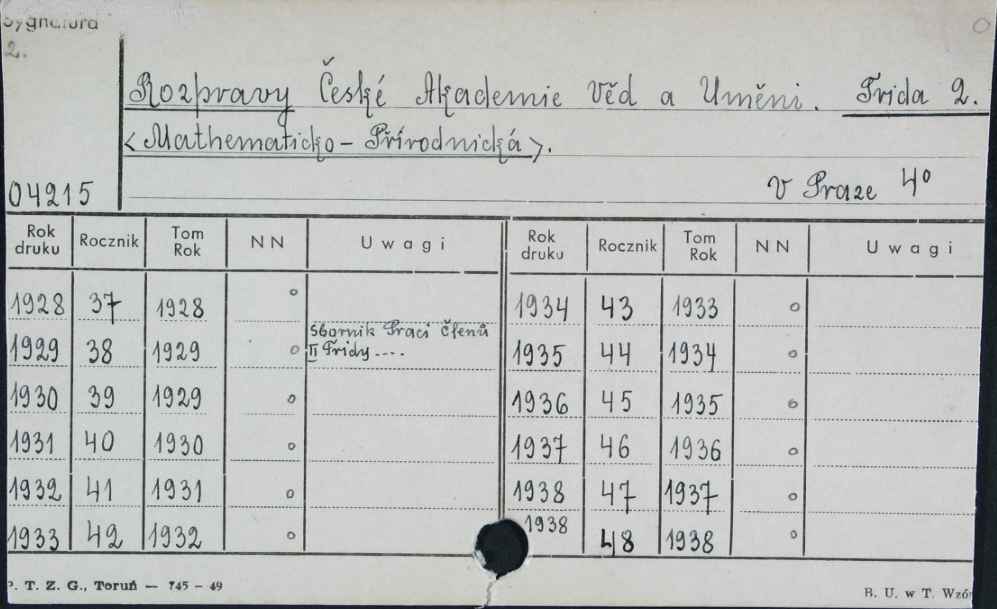 Sygnatura
2.
Rozpravy České Akademie Věd a Uměni. Trida 2.
<Mathematicko - Přírodnická>.
04215
v Praze 4°
Rok druku | Rocznik | Tom Rok | NN | Uwagi | Rok druku | Rocznik | Tom Rok | NN | Uwagi
1928 | 37 | 1928 | o | | 1934 | 43 | 1933 | o |
1929 | 38 | 1929 | o | Sbornik Praci Členů II Třidy .... | 1935 | 44 | 1934 | o |
1930 | 39 | 1929 | o | | 1936 | 45 | 1935 | o |
1931 | 40 | 1930 | o | | 1937 | 46 | 1936 | o |
1932 | 41 | 1931 | o | | 1938 | 47 | 1937 | o |
1933 | 42 | 1932 | o | | 1938 | 48 | 1938 | o |
P. T. Z. G., Toruń — 745 - 49
B. U. w T. Wzór